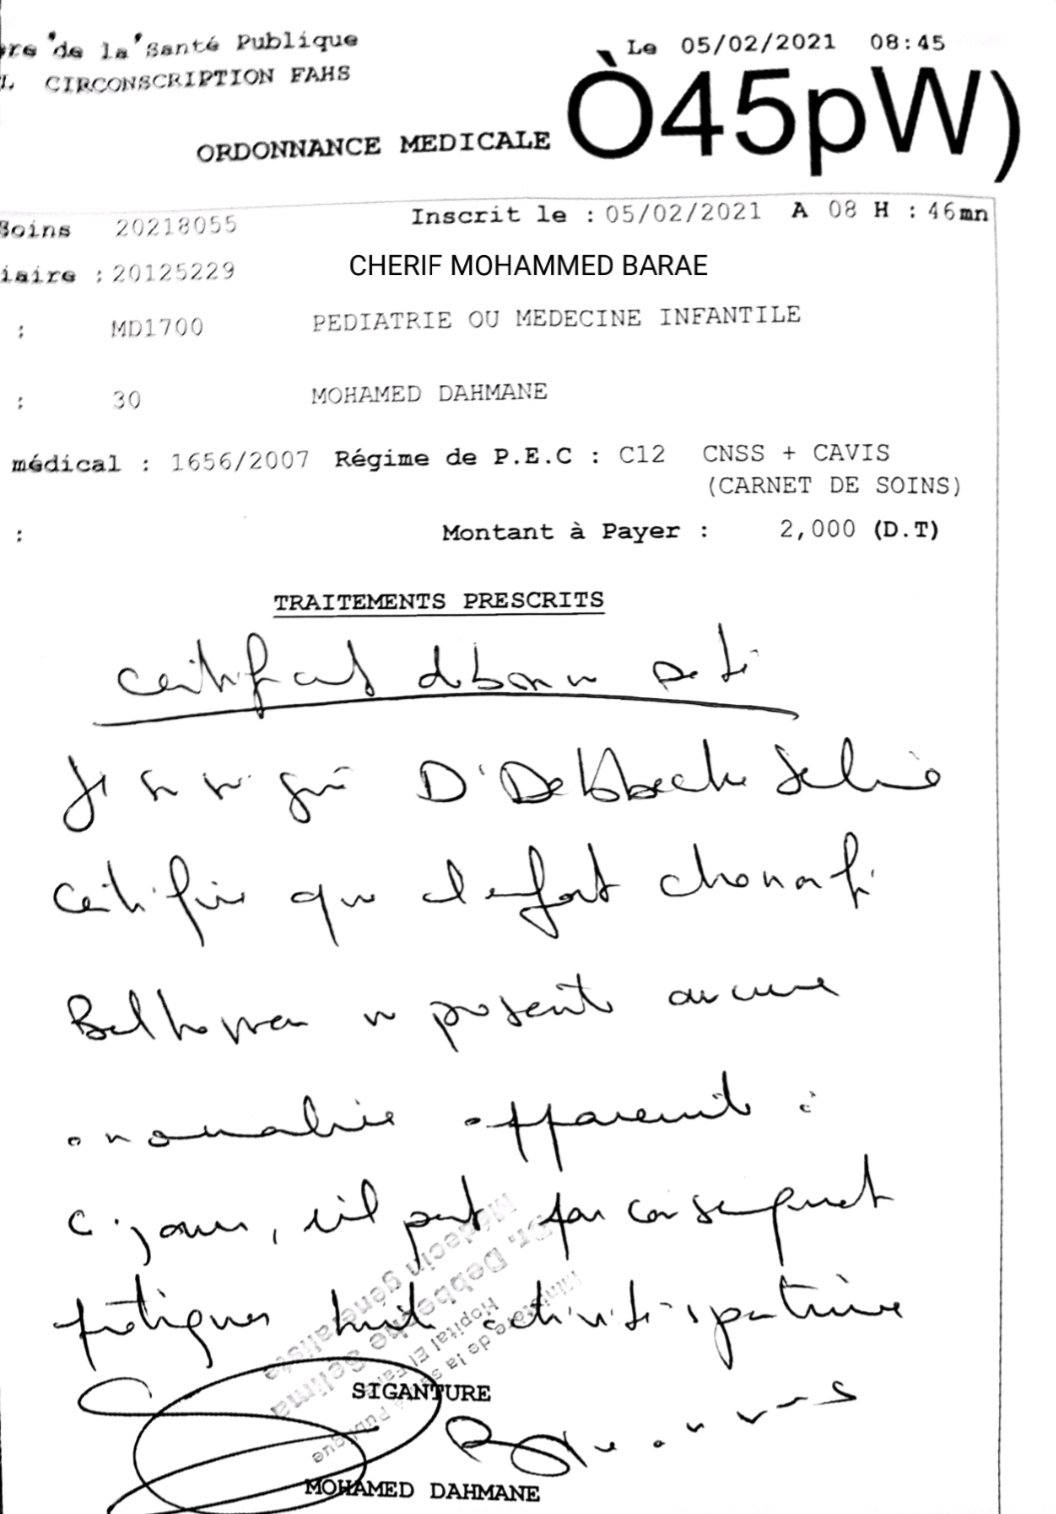 de la Santé Publique
Le 05/02/2021 08:45
CIRCONSCRIPTION FAHS
Ò45pW)
ORDONNANCE MEDICALE
Soins 20218055 Inscrit le : 05/02/2021 A 08 H : 46mn
iaire : 20125229 CHERIF MOHAMMED BARAE
: MD1700 PEDIATRIE OU MEDECINE INFANTILE
: 30 MOHAMED DAHMANE
médical : 1656/2007 Régime de P.E.C : C12 CNSS + CAVIS
(CARNET DE SOINS)
: Montant à Payer : 2,000 (D.T)
TRAITEMENTS PRESCRITS
Certificat
Je Dr Debbeche Selima
Certifie que l'enfant
ne présente aucune
anomalie apparente à
ce jour, il peut par conséquent
pratiquer toute activité sportive
Dr. Debbeche Selima
Médecin généraliste
SIGANTURE
MOHAMED DAHMANE